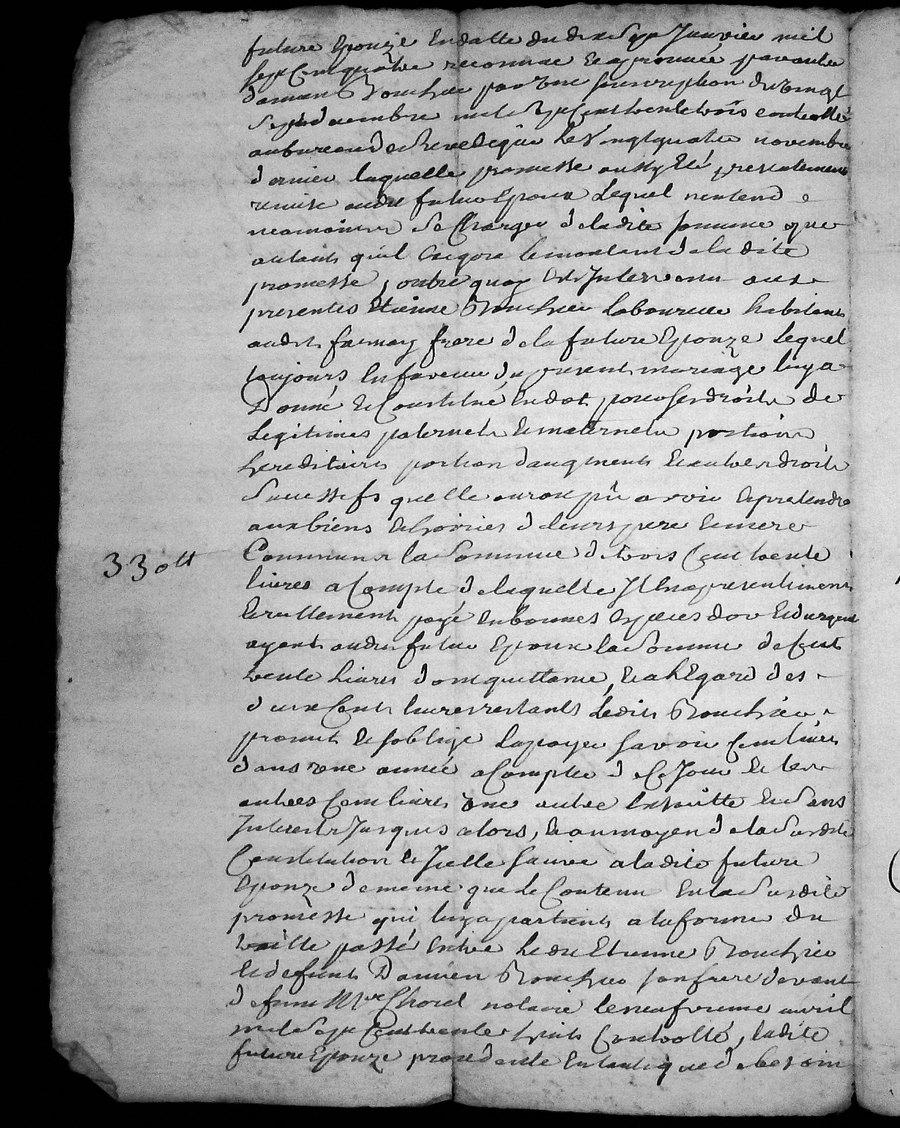 future Epouze En datte du dix Sept Janvier mil
Sept Cent quatre reconnue Et aprouvée par
Damien Rouchier par une souscription du vingt
Sept mil Sept Cent trente trois controllé
au bureau de le Vingt quatre novembre
dernier laquelle promesse a ensuitte Eté presentement
remise audit futur Epoux Lequel nentend
neanmoins Se Charger de ladite somme que
autant quil Exigera le montant de la dite
promesse, outre quoy Est Intervenu aux
presentes Etienne Rouchier laboureur habitant
audit frere de la future Epouze Lequel
toujours En faveur du present mariage luy a
Donné Et Constitué En dot pour Ses droits de
Legitimes paternels Et maternels portion
hereditaire portion daugments Et autres droits
Successifs quelle auroit pû avoir Et pretendre
aux biens Et hoiries de leurs pere Et mere
Communs la Somme de trois Cent trente
330 lt
livres a Compte de laquelle Il En a presentement
Et reellement payé En bonnes Especes dor Et dargent
ayant audit futur Epoux la Somme de Cent
trente Livres dont quittance, Et a lEgard des
deux Cent livres restants Ledit Rouchier
promet Et soblige La payer savoir Cent livres
dans une année a Compter de Ce Jour Et les
autres Cent livres une autre Ensuitte Et Sans
Interest Jusques alors, Et au moyen de la Susdite
Constitution Et Icelle sauve a ladite future
Epouze de meme que le Contenu En la Susdite
promesse qui luy apartient a la forme du
traitté passé Entre Ledit Etienne Rouchier
Et defunt Damien Rouchier son frere devant
defunt Mre Chorel notaire le neufvieme avril
mil Sept Cent trente huit Controllé, ladite
future Epouze procedante En tant que de besoin